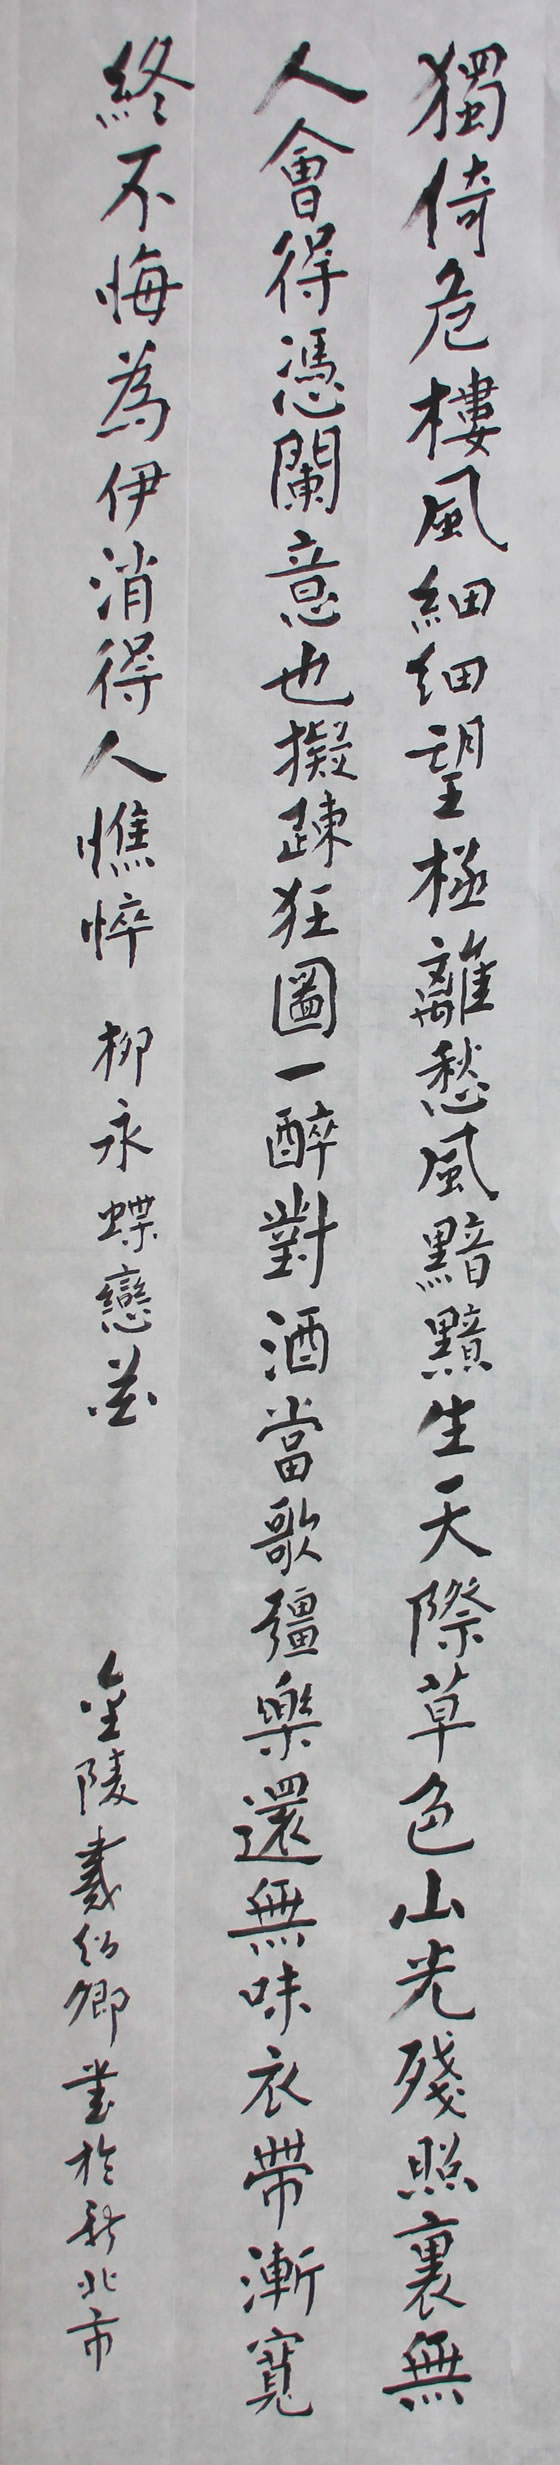 獨倚危樓風細細望極離愁風黯黯生天際草色山光殘照裏無
人會得憑闌意也擬疎狂圖一醉對酒當歌彊樂還無味衣帶漸寬
終不悔為伊消得人憔悴 柳永蝶戀花 金陵戴紹卿書於新北市